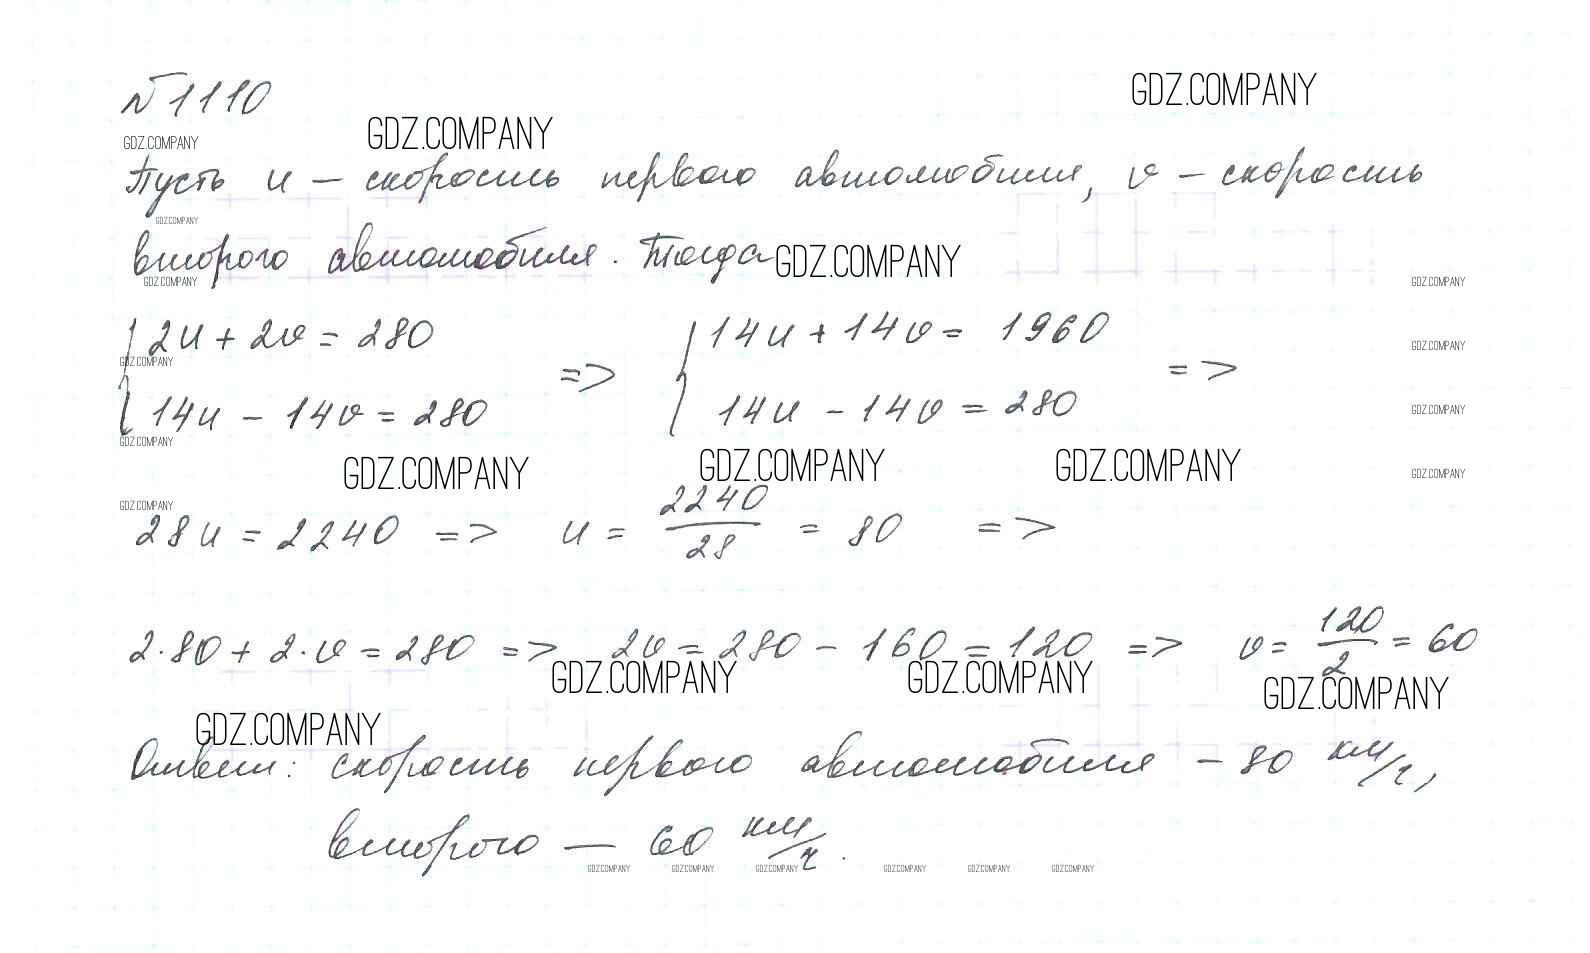 №1110
GDZ.COMPANY
GDZ.COMPANY
GDZ.COMPANY
Пусть u – скорость первого автомобиля, v – скорость
GDZ.COMPANY
второго автомобиля. Тогда
GDZ.COMPANY
GDZ.COMPANY
GDZ.COMPANY
2u + 2v = 280 => 14u + 14v = 1960 =>
GDZ.COMPANY
GDZ.COMPANY
14u – 14v = 280 14u – 14v = 280
GDZ.COMPANY
GDZ.COMPANY
GDZ.COMPANY GDZ.COMPANY GDZ.COMPANY
GDZ.COMPANY
GDZ.COMPANY
28u = 2240 => u = 2240/28 = 80 =>
2·80 + 2·v = 280 => 2v = 280 – 160 = 120 => v = 120/2 = 60
GDZ.COMPANY GDZ.COMPANY GDZ.COMPANY
GDZ.COMPANY
Ответ: скорость первого автомобиля – 80 км/ч,
второго — 60 км/ч.
GDZ.COMPANY GDZ.COMPANY GDZ.COMPANY GDZ.COMPANY GDZ.COMPANY GDZ.COMPANY